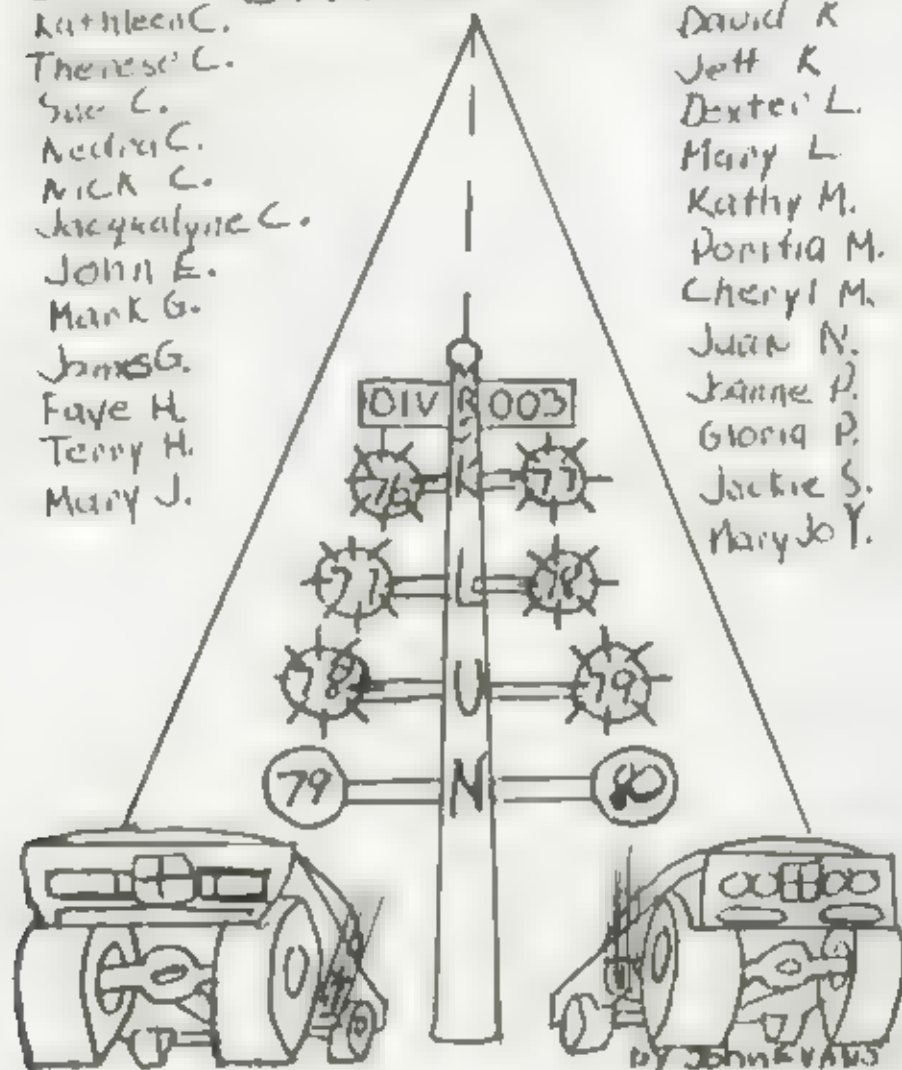 Kathleen C.
Therese C.
Sue C.
Nedra C.
Nick C.
Jacqualyne C.
John E.
Mark G.
James G.
Faye H.
Terry H.
Mary J.
David K
Jeff K
Dexter L.
Mary L
Kathy M.
M.
Cheryl M.
Juan N.
Joanne P.
Gloria P.
Jackie S.
Mary Jo Y.
DIV R 003
76 K 77
77 L 78
78 U 79
79 N 80
by John EVANS